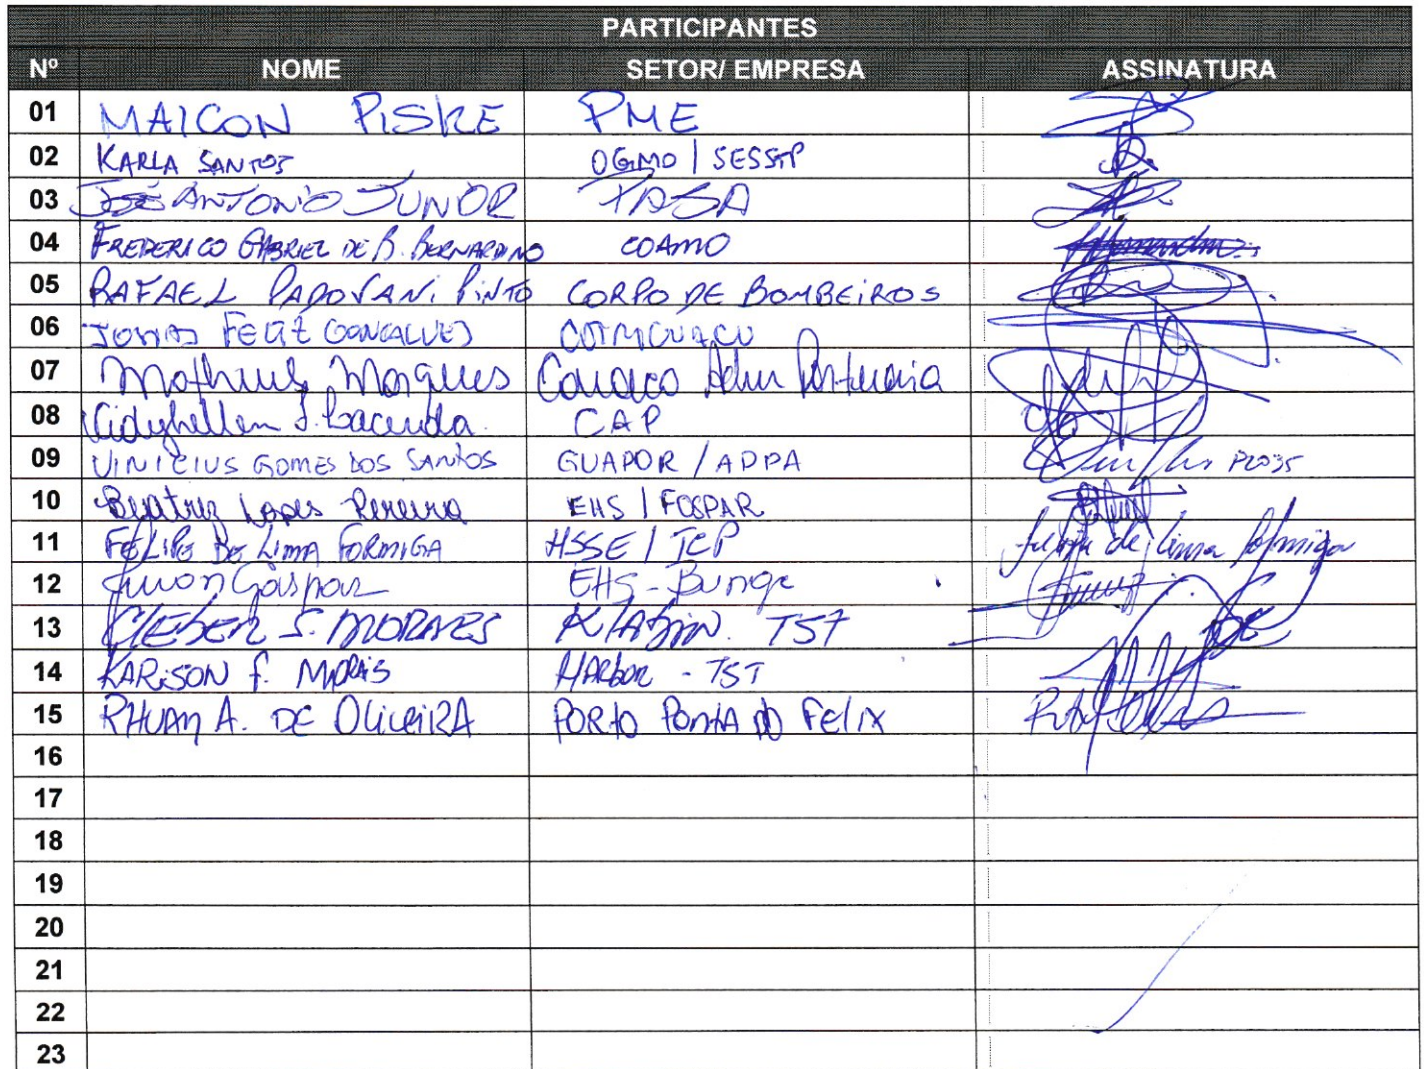 PARTICIPANTES
Nº NOME SETOR/ EMPRESA ASSINATURA
01 MAICON PISKE PME
02 KARLA SANTOS OGMO | SESSTP
03 JOSÉ ANTONIO JUNIOR PASA
04 FREDERICO GABRIEL DE B. BERNARDINO COAMO
05 RAFAEL PADOVANI PINTO CORPO DE BOMBEIROS
06 JONAS FELIZ GONCALVES COTRIGUAÇU
07 Matheus Marques Portuaria
08 Lacerda CAP
09 VINICIUS GOMES DOS SANTOS GUAPOR / APPA
10 Beatriz Lopes Pereira EHS | FOSPAR
11 FELIPE DE LIMA FORMIGA HSSE / TCP Felipe de Lima Formiga
12 Gaspar EHS - Bunge
13 CLEBER S. MORAES KlAbin. TST
14 KARISON F. MORAIS HARbor - TST
15 RHUAN A. DE OLIVEIRA PORTO PONTA DO FELIX
16
17
18
19
20
21
22
23